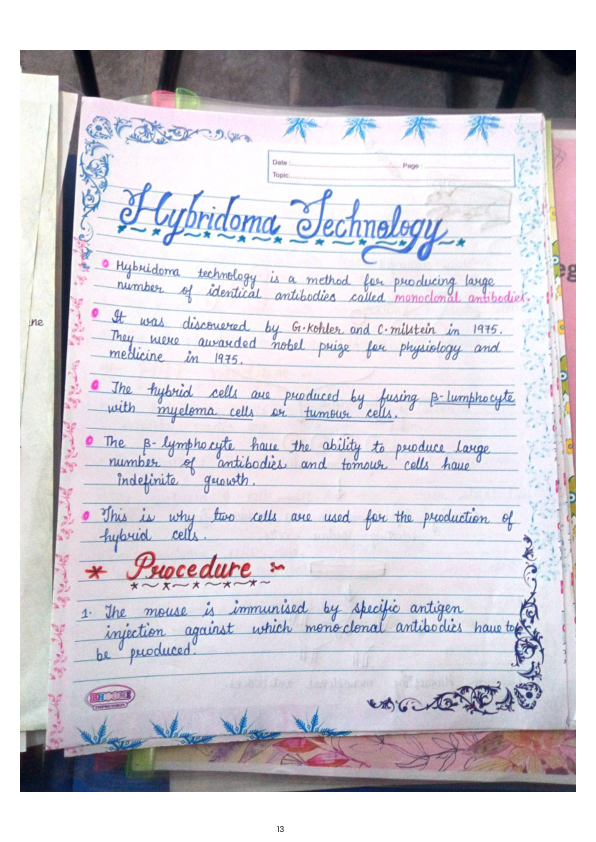 Date :
Page :
Topic
Hybridoma Technology
Hybridoma technology is a method for producing large
number of identical antibodies called monoclonal antibodies.
It was discovered by G. Kohler and C. milstein in 1975.
They were awarded nobel prize for physiology and
medicine in 1975.
The hybrid cells are produced by fusing β-lumphocyte
with myeloma cells or tumour cells.
The β- lymphocyte have the ability to produce large
number of antibodies and tomour cells have
indefinite growth.
This is why two cells are used for the production of
hybrid cells.
* Procedure :~
1. The mouse is immunised by specific antigen
injection against which monoclonal antibodies have to
be produced.
ne
eg
13